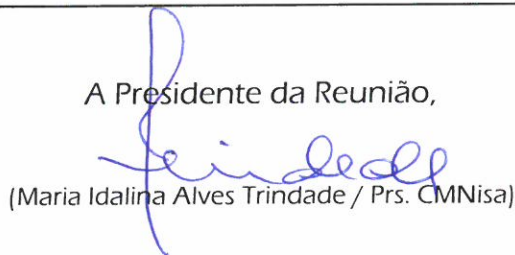 A Presidente da Reunião,
Trindade
(Maria Idalina Alves Trindade / Prs. CMNisa)